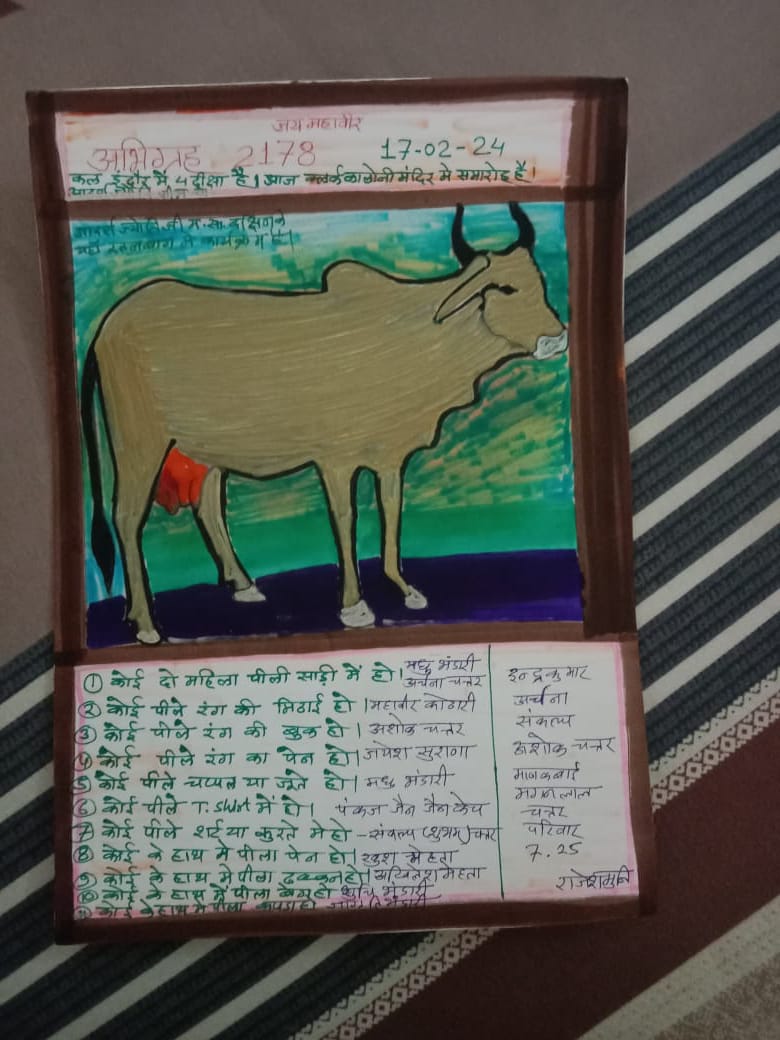 जय महावीर
अभिग्रह 2178 17-02-24
कल इंदौर में 4 दीक्षा है। आज क्लर्क कालोनी मंदिर मे समारोह है।
ज्योति जी म.सा.
मे कार्यक्रम है।
① कोई दो महिला पीली साड़ी में हो। मधु भंडारी
अर्चना चत्तर
② कोई पीले रंग की मिठाई हो। महावीर कोठारी
③ कोई पीले रंग की बुक हो। अशोक चत्तर
④ कोई पीले रंग का पेन हो। जयेश सुराणा
⑤ कोई पीले चप्पल या जूते हो। मधु भंडारी
⑥ कोई पीले T. Shirt में हो। पंकज जैन जैन
⑦ कोई पीले शर्ट या कुरते मे हो - संकल्प (शुभम) चत्तर
⑧ कोई के हाथ मे पीला पेन हो। खुश मेहता
⑨ कोई के हाथ मे पीला ढक्कन हो। मेहता
⑩ कोई के हाथ में पीला बेग हो भंडारी
⑪ कोई के हाथ मे पीला कपड़ा हो
इन्द्रकुमार
अर्चना
संकल्प
अशोक चत्तर
माणकबाई
मगनलाल
चत्तर
परिवार
7.25
राजेशमुनि